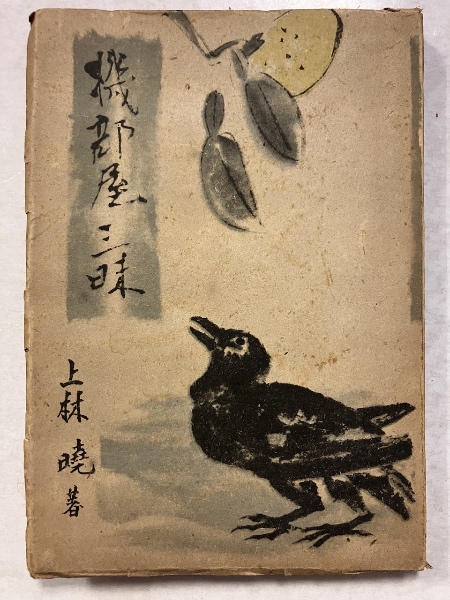 機部屋三昧
上林暁著